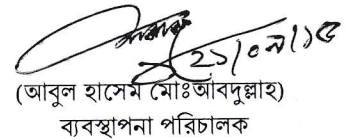 ২১/০৮/১৫
(আবুল হাসেম মোঃআবদুল্লাহ)
ব্যবস্থাপনা পরিচালক